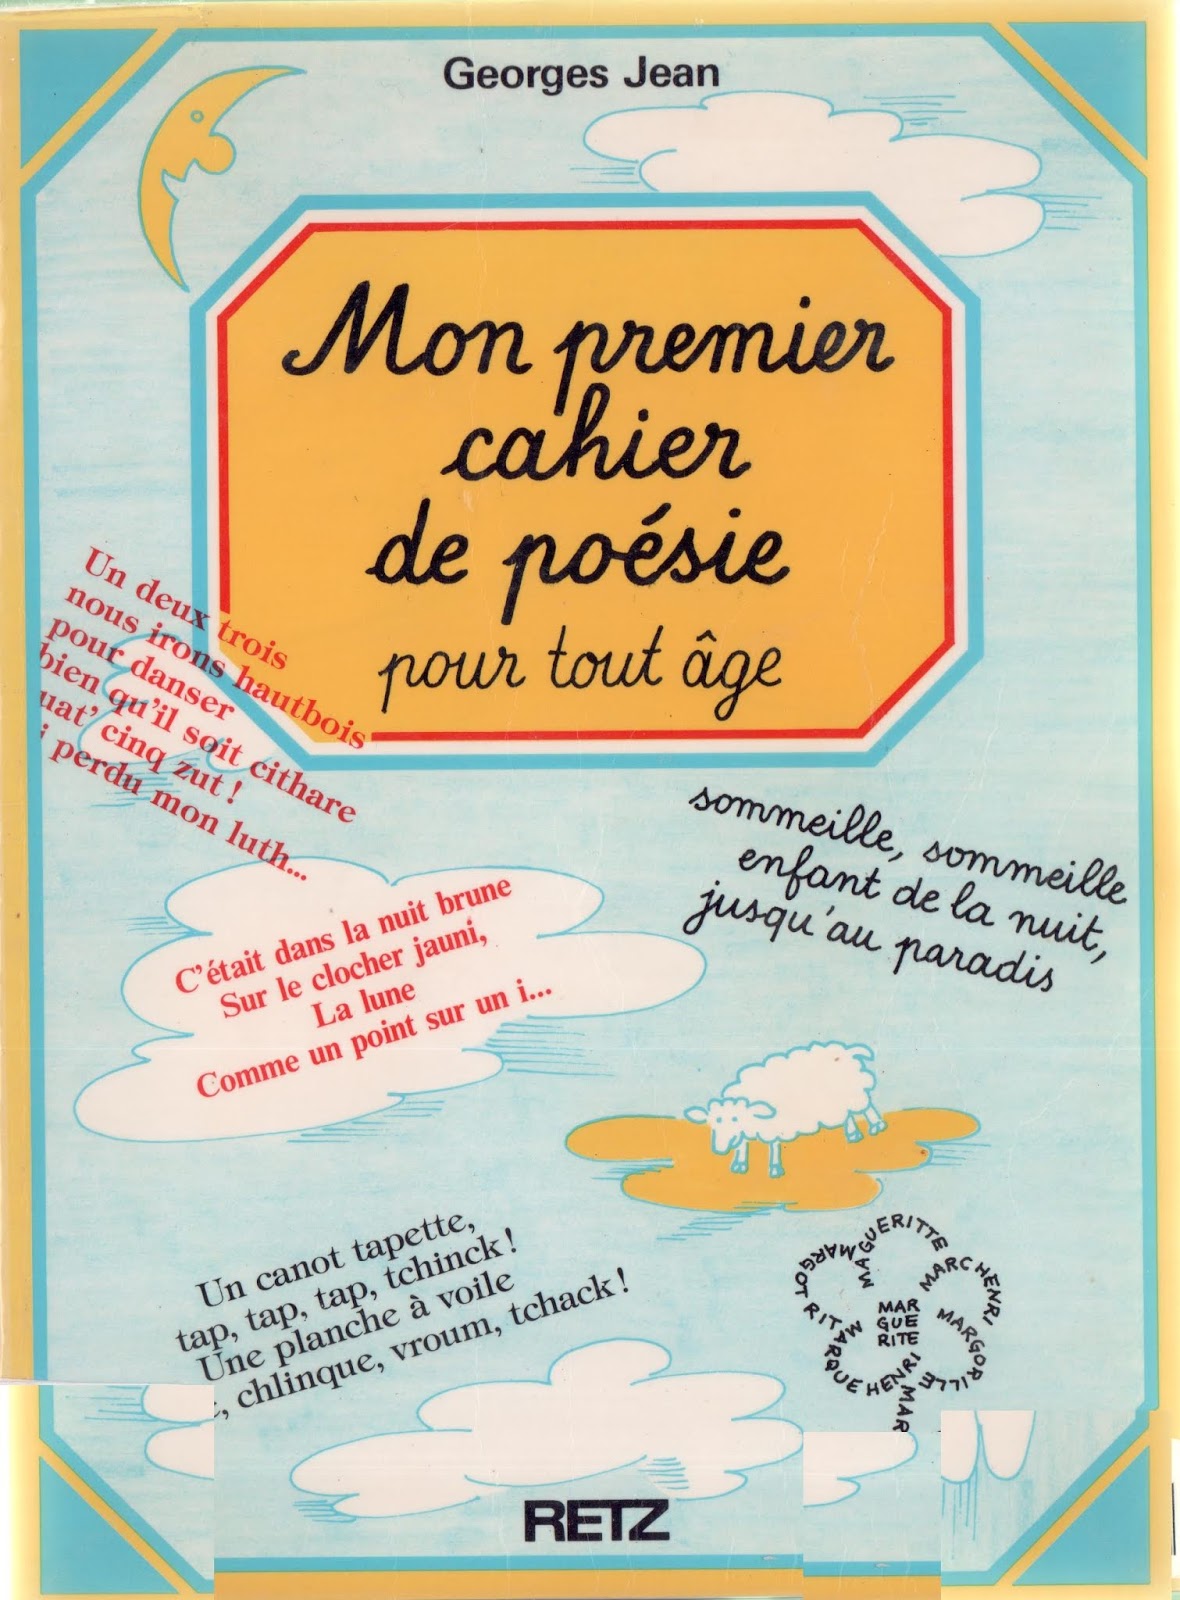 Georges Jean
Mon premier
cahier
de poésie
pour tout âge
Un deux trois
nous irons hautbois
pour danser
bien qu'il soit cithare
uat' cinq zut !
i perdu mon luth...
sommeille, sommeille
enfant de la nuit,
jusqu'au paradis
C'était dans la nuit brune
Sur le clocher jauni,
La lune
Comme un point sur un i...
Un canot tapette,
tap, tap, tap, tchinck !
Une planche à voile
, chlinque, vroum, tchack !
MAGUERITTE
MARC HENRI
MARGORILLE
MARQUE HENRI
RITA
MARGOT
MAR
GUE
RITE
MAR
RETZ